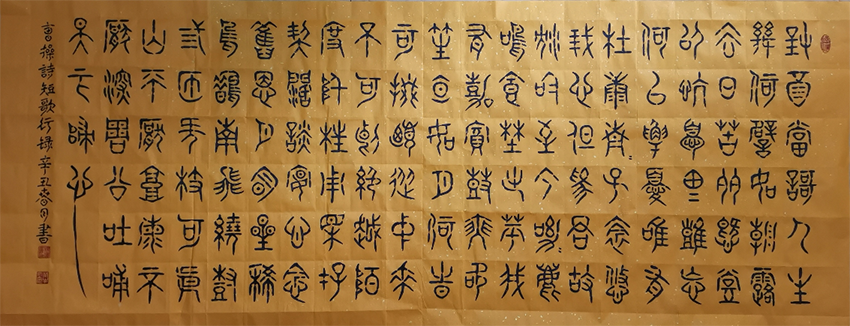 對酒當謌人生
幾何譬如朝露
去日苦多慨當
以忼憂思難忘
何以解憂唯有
杜康青=子衿悠=
我心但爲君故
沈吟至今呦=鹿
鳴食野之苹我
有嘉賓鼓瑟吹
笙明=如月何時
可掇憂從中來
不可斷絕越陌
度阡枉用相存
契闊談讌心念
舊恩月明星稀
烏鵲南飛繞樹
三匝何枝可依
山不厭高海不
厭深周公吐哺
天下歸心
曹操詩短歌行錄辛丑春月書